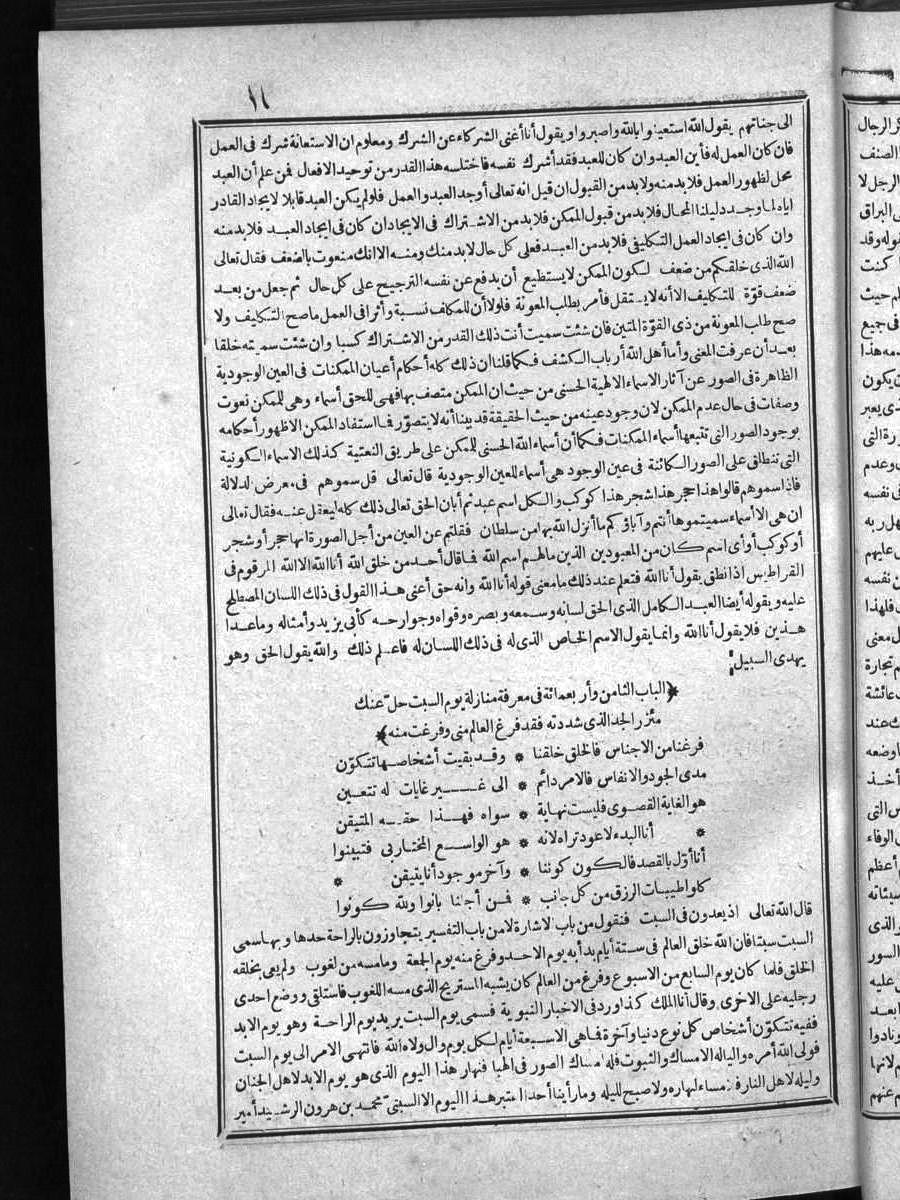 ١١
الى جناتهم يقول الله استعينوا بالله واصبروا ويقول أنا أغنى الشركاء عن الشرك ومعلوم ان الاستعانة شرك فى العمل
فان كان العمل له فأين العبد وان كان للعبد فقد أشرك نفسه فاختلسه هذا القدر من توحيد الافعال فمن علم أن العبد
محل لظهور العمل فلابد منه ولابد من القبول ان قيل انه تعالى أوجد العبد والعمل فلو لم يكن العبد قابلا لايجاد القادر
اياه لما وجد دليلنا المحال فلابد من قبول الممكن فلابد من الاشتراك فى الايجاد ان كان فى ايجاد العبد فلابد منه
وان كان فى ايجاد العمل التكليفى فلابد من العبد فعلى كل حال لابد منك ومنه الا انك منعوت بالضعف فقال تعالى
الله الذى خلقكم من ضعف لكون الممكن لا يستطيع أن يدفع عن نفسه الترجيح على كل حال ثم جعل من بعد
ضعف قوّة للتكليف الا أنه لا يستقل فأمر بطلب المعونة فلولا أن للمكلف نسبة وأثرا فى العمل ما صح التكليف ولا
صح طلب المعونة من ذى القوّة المتين فان شئت سميت أنت ذلك القدر من الاشتراك كسبا وان شئت سميته خلقا
بعد أن عرفت المعنى وأما أهل الله أرباب الكشف فكما قلنا ان ذلك كله أحكام أعيان الممكنات فى العين الوجودية
الظاهرة فى الصور عن آثار الاسماء الالهية الحسنى من حيث ان الممكن متصف بها فهى للحق أسماء وهى للممكن نعوت
وصفات فى حال عدم الممكن لان وجود عينه من حيث الحقيقة قد بينا أنه لا يتصوّر فما استفاد الممكن الا ظهور أحكامه
بوجود الصور التى تتبعها أسماء الممكنات فكما أن أسماء الله الحسنى للممكن على طريق النعتية كذلك الاسماء الكونية
التى تنطلق على الصور الكائنة فى عين الوجود هى أسماء للعين الوجودية قال تعالى قل سموهم فى معرض الدلالة
فاذا سموهم قالوا هذا حجر هذا شجر هذا كوكب والكل اسم عبد ثم أبان الحق تعالى ذلك كله ليعقل عنه فقال تعالى
ان هى الا أسماء سميتموها أنتم وآباؤكم ما أنزل الله بها من سلطان فقلتم عن العين من أجل الصورة انها حجر أو شجر
أو كوكب أو أى اسم كان من المعبودين الذين ما لهم اسم الله فما قال أحد من خلق الله أنا الله الا الله المرقوم فى
القراطيس اذا نطق يقول أنا الله فتعلم عند ذلك ما معنى قوله أنا الله وانه حق أعنى هذا القول فى ذلك اللسان المصطلح
عليه ويقوله أيضا العبد الكامل الذى الحق لسانه وسمعه وبصره وقواه وجوارحه كأبى يزيد وأمثاله وما عدا
هذين فلا يقول أنا الله وانما يقول الاسم الخاص الذى له فى ذلك اللسان له فاعلم ذلك والله يقول الحق وهو
يهدى السبيل
﴿الباب الثامن وأربعمائة فى معرفة منازلة يوم السبت حلّ عنك
مئزر الجد الذى شددته فقد فرغ العالم منى وفرغت منه﴾
فرغنا من الاجناس فالخلق خلقنا * وقد بقيت أشخاصها تتكوّن
مدى الجود والانفاس فالامر دائم * الى غير غايات له تتعين
هو الغاية القصوى فليست نهاية * سواه فهذا حقه المتيقن
* أنا البدء لا عود تراه لانه * هو الواسع المختار بى فتبينوا
أنا أوّل بالقصد فالكون كوننا * وآخر موجود أنا يتيقن *
كلوا طيبات الرزق من كل جانب * فمن أجلنا بانوا ولله كونوا
قال الله تعالى اذ يعدون فى السبت فنقول من باب الاشارة لا من باب التفسير يتجاوزون بالراحة حدها وبها سمى
السبت سبتا فان الله خلق العالم فى ستة أيام بدأ به يوم الاحد وفرغ منه يوم الجمعة وما مسه من لغوب ولم يعى بخلقه
الخلق فلما كان يوم السابع من الاسبوع وفرغ من العالم كان يشبه المستريح الذى مسه اللغوب فاستلقى ووضع احدى
رجليه على الاخرى وقال أنا الملك كذا ورد فى الاخبار النبوية فسمى يوم السبت يريد يوم الراحة وهو يوم الابد
ففيه تتكوّن أشخاص كل نوع دنيا وآخرة فما هى الا سبعة أيام لكل يوم وال ولاه الله فانتهى الامر الى يوم السبت
فولى الله أمره واليا له الامساك والثبوت فله امساك الصور فى الهبا فنهار هذا اليوم الذى هو يوم الابد لاهل الجنان
وليله لاهل النار فلا مساء لنهاره ولا صبح لليله وما رأينا أحدا اعتبر هذا اليوم الا السبتى محمد بن هرون الرشيد أمير